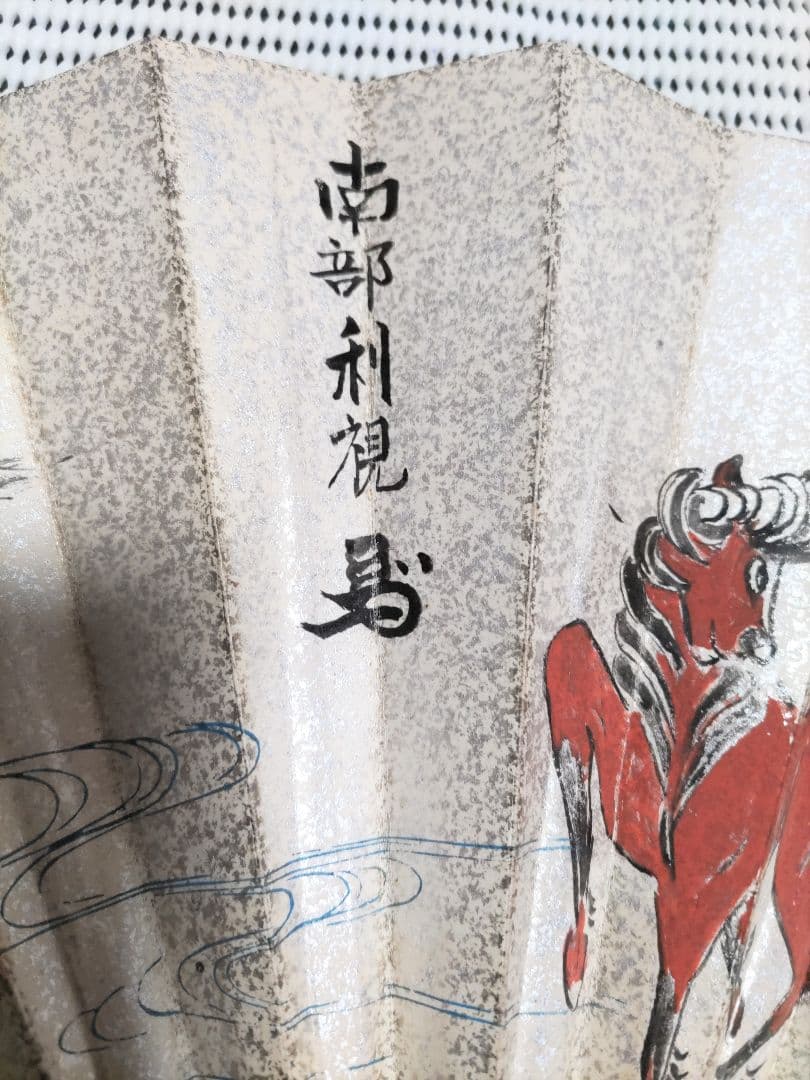 南部利視